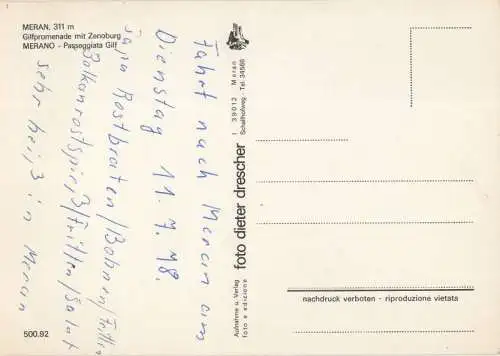 MERAN, 311 m
Gilfpromenade mit Zenoburg
MERANO - Passeggiata Gilf
Fahrt nach Meran am
Dienstag 11. 7. 78.
Rostbraten/Bohnen/Fritten
Balkanrostspieß/Fritten/Salat
sehr heiß in Meran
500.92
Aufnahme u. Verlag
foto e edizione
foto dieter drescher
I 39012 Meran
Schafferweg - Tel. 34566
nachdruck verboten - riproduzione vietata